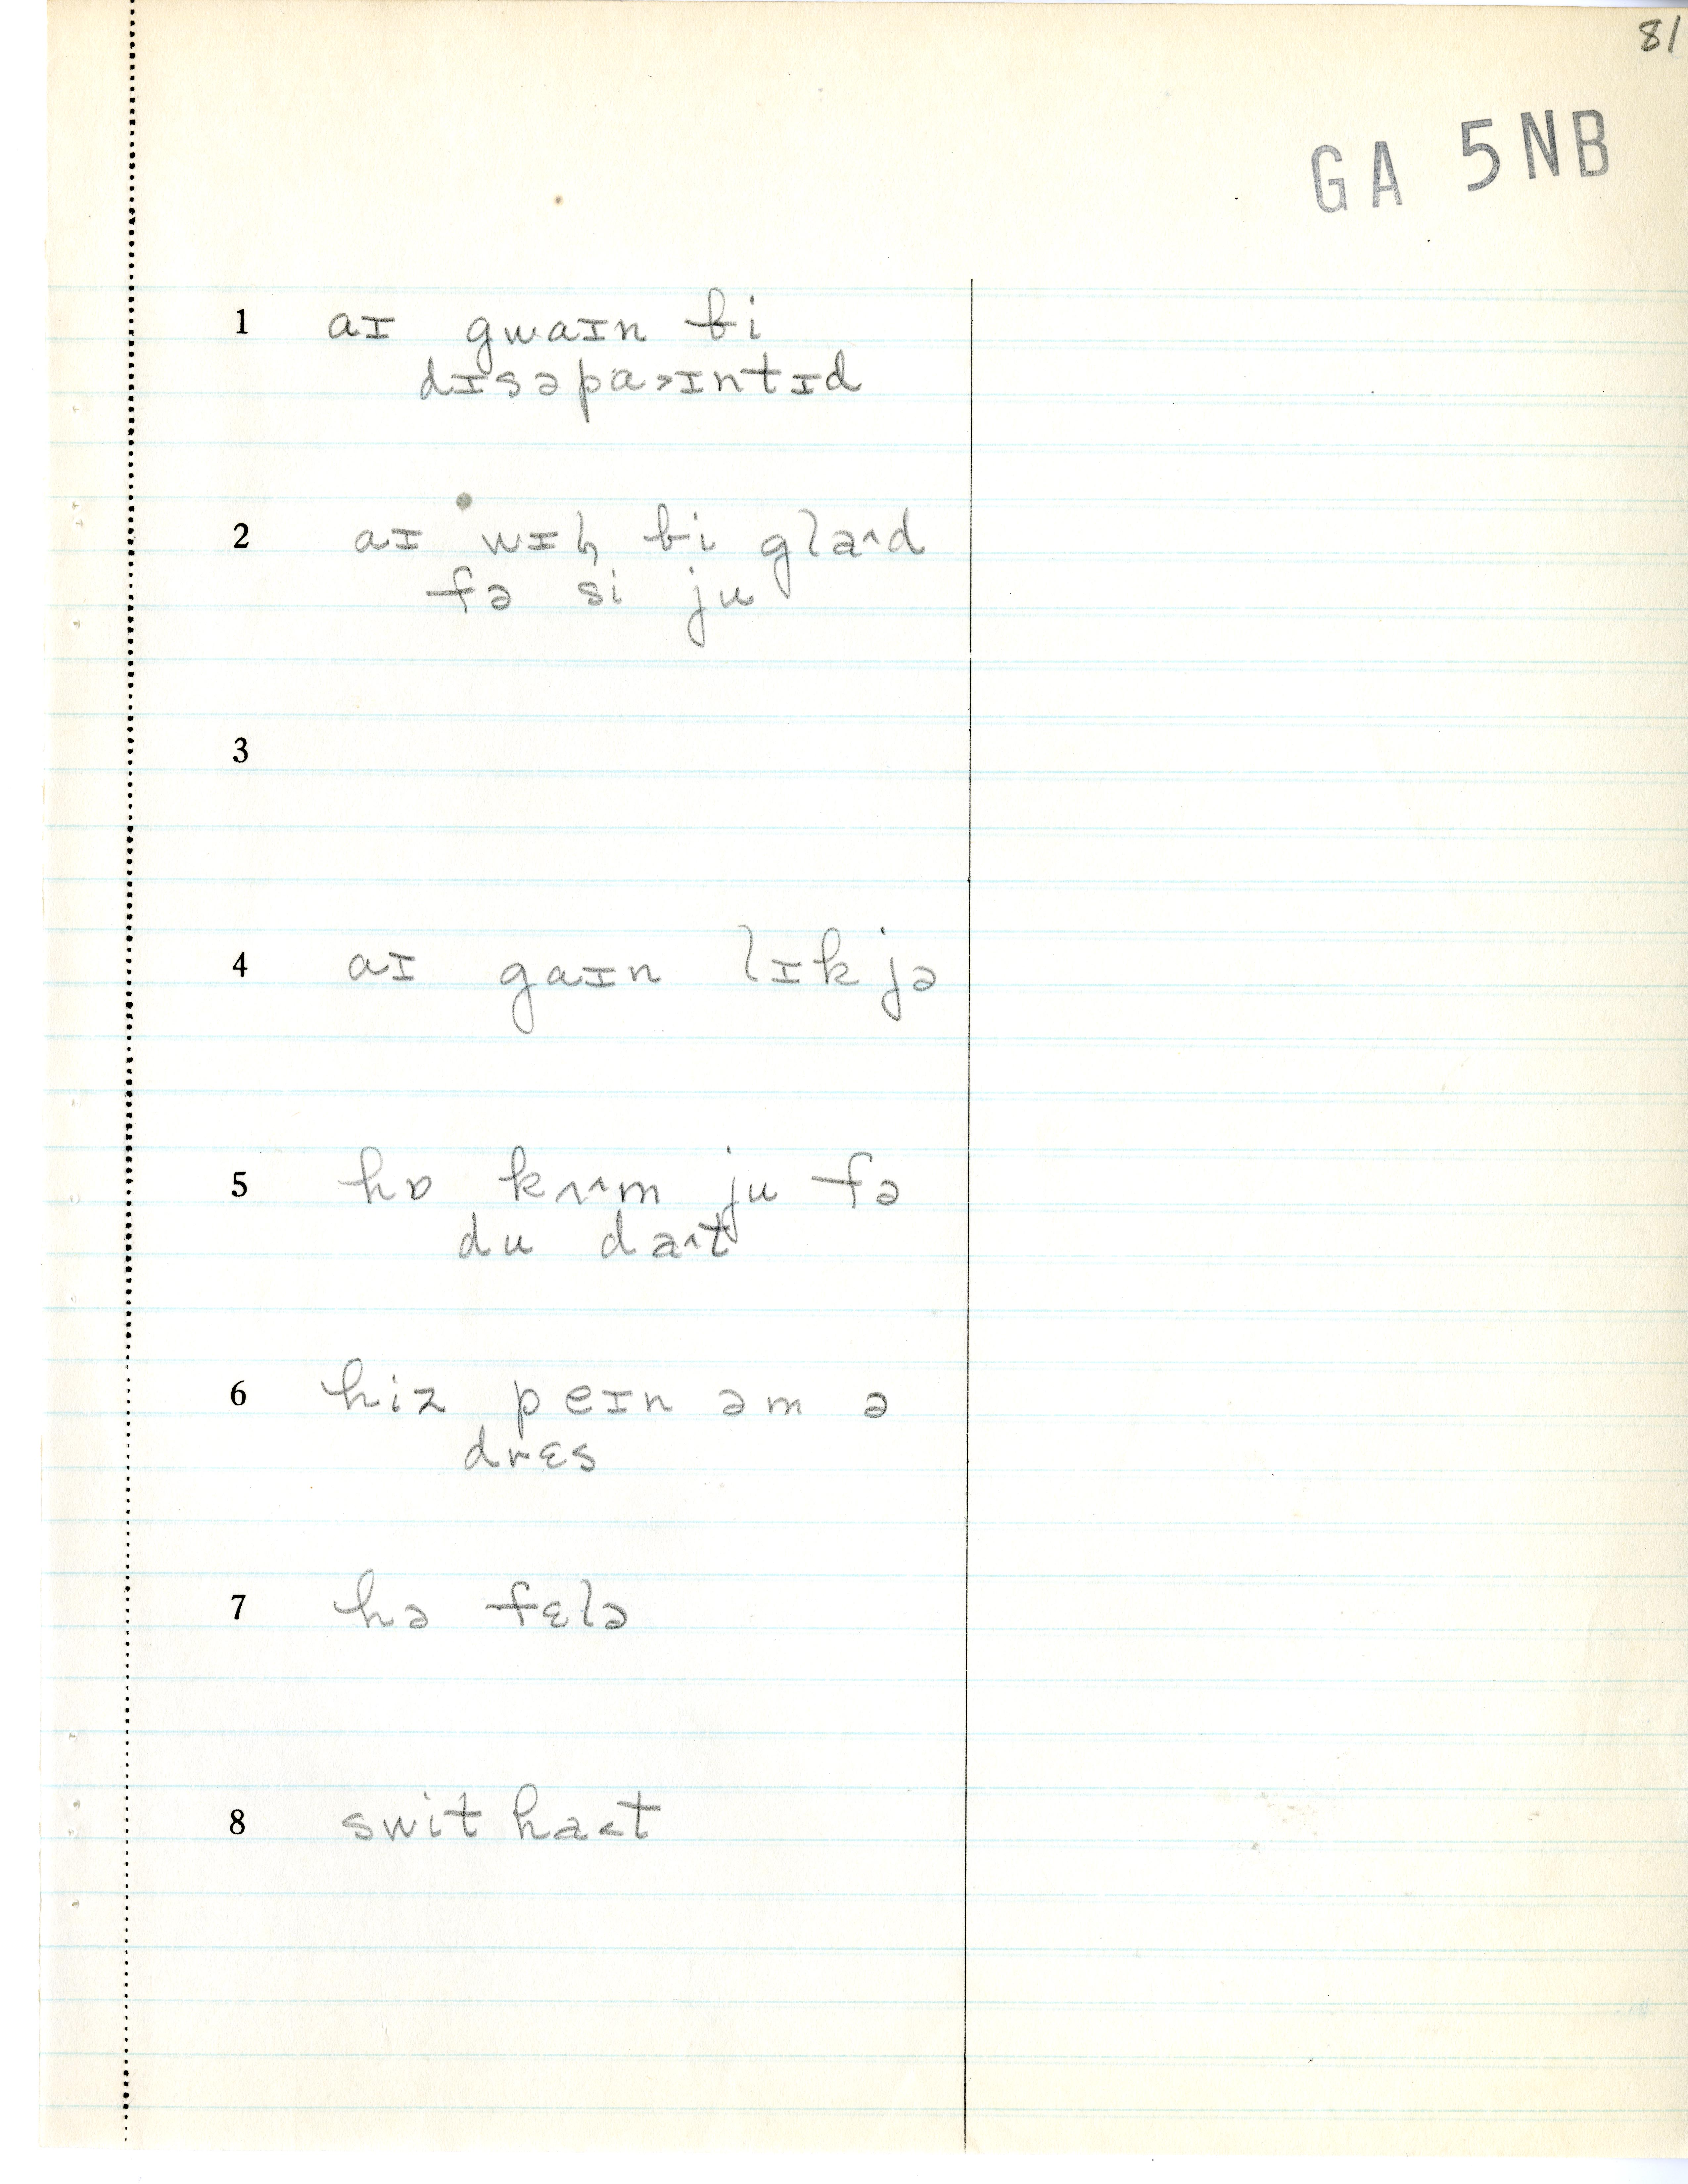 81
GA 5NB
1 aɪ gwaɪn bi
dɪsəpa˃ɪntɪd
2 aɪ wɪɦ bi gla˄d
fə si ju
3
4 aɪ gaɪn lɪk jə
5 hɒ kʌ˄m ju fə
du da˄t
6 hiz peɪn əm ə
drɛs
7 hə fɛlə
8 swit ha˂t